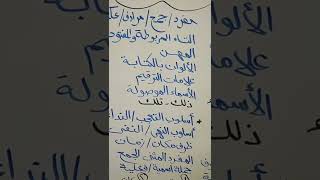 مفرد / جمع / مرادف / عك
التاء المربوطة والمفتوح
المهن
الألوان بالكتابة
علامات الترقيم
الأسماء الموصولة
ذلك - تلك
أسلوب التعجب / النداء
أسلوب النهي / النفي
ظرف مكان / زمان
المفرد المثنى الجمع
جملة اسمية / فعلية